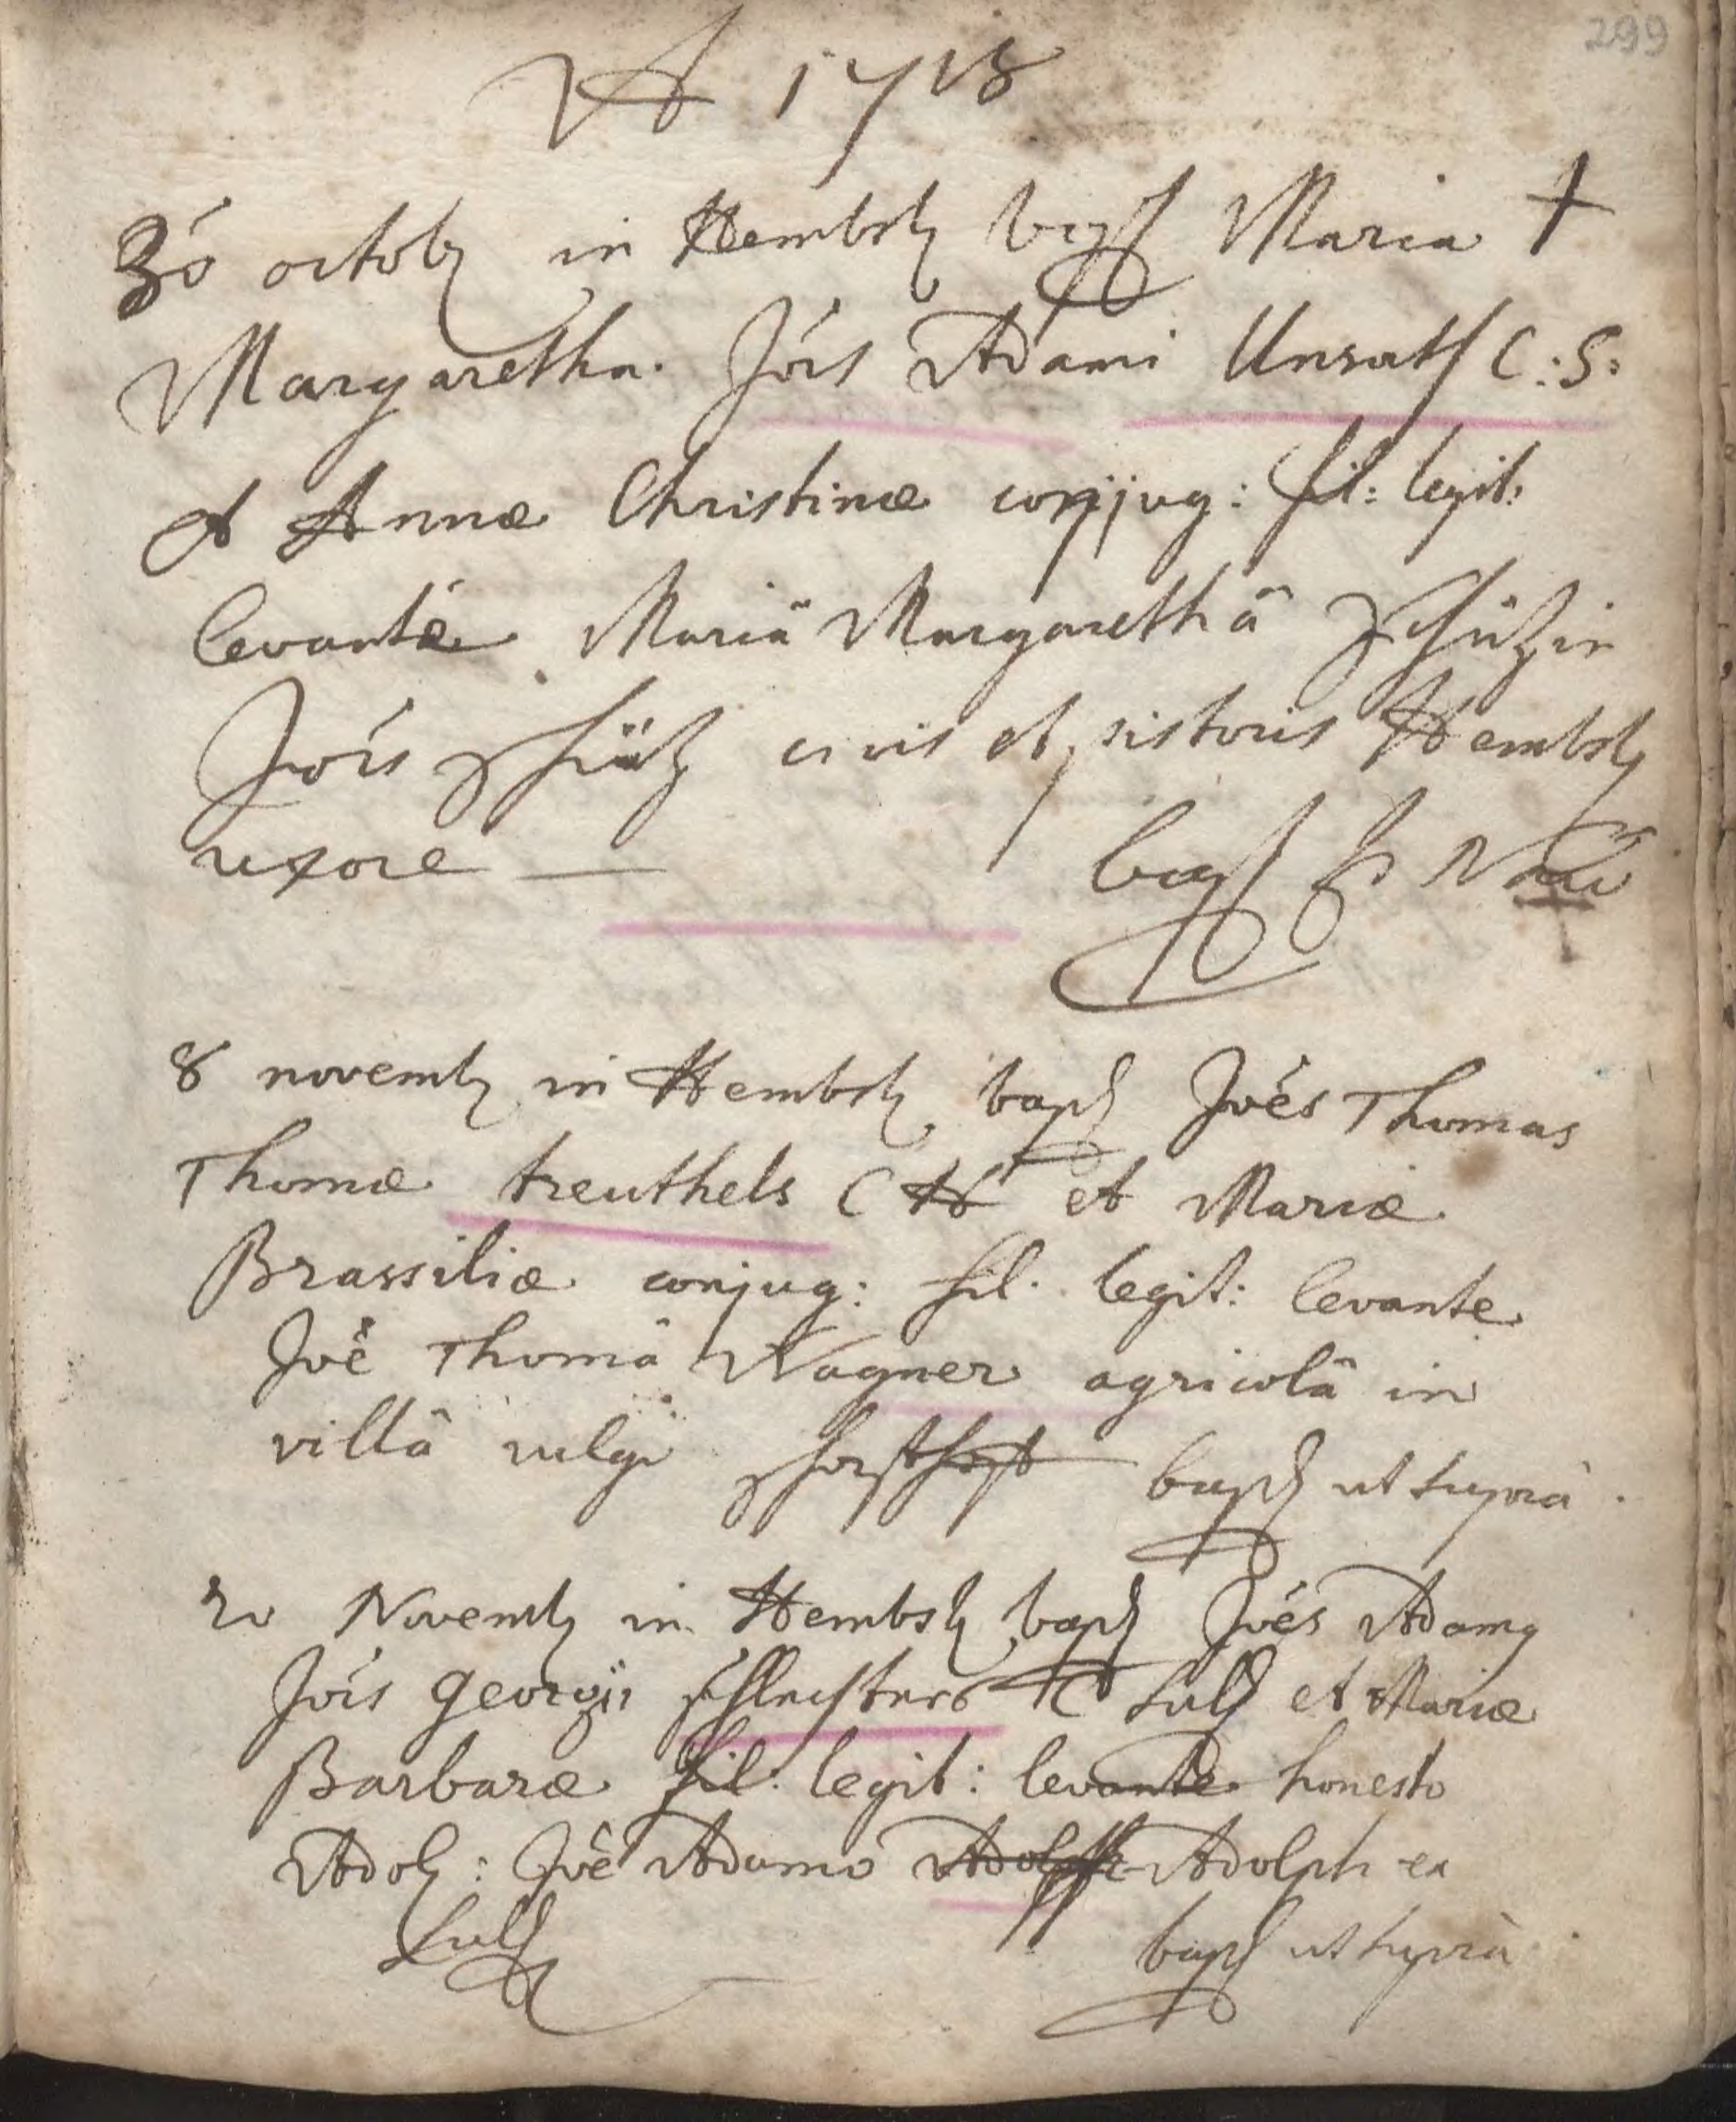 299
A 1718
30 octob in Hembsb bapt Maria †
Margaretha Jois Adami Unrath C: S:
et Annæ Christinæ conjug: fil: legit:
levante Mariâ Margarethâ Schützin
Jois Schütz civis et pistoris Hembsb
uxore — bapt
8 novemb in Hembsb bapt Joēs Thomas
Thomæ treuthels C H et Mariæ
Brassiliæ conjug: fil. legit: levante
Joē Thomâ Wagner agricolâ in
villâ vulgo bapt ut supra.
20 Novemb in Hembsb bapt Joēs Adamg
Jois georgii C Sulb et Mariæ
Barbaræ fil: legit: levante honesto
Adol: Joē Adamo Adolph ex
Sulb bapt ut supra